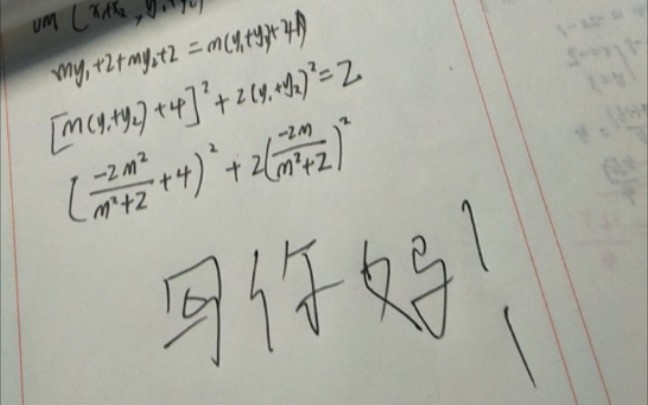 OM (x₁+x₂, y₁+y₂)
my₁+2+my₂+2 = m(y₁+y₂)+4
[m(y₁+y₂)+4]²+2(y₁+y₂)²=2
(-2m²/(m²+2)+4)²+2(-2m/(m²+2))²
写你妈!